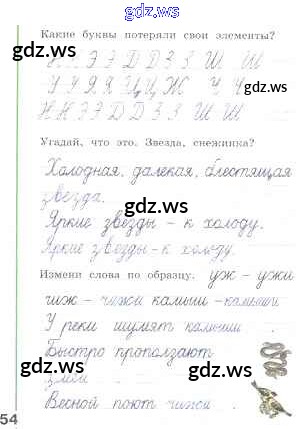 gdz.ws
Какие буквы потеряли свои элементы?
Н Н Э Э Д Д З З Ш Ш
У Ч Я Я Ц Ц Ж Ч Ч
Н Н Э Э Д Д З З Ш Ш
Угадай, что это. Звезда, снежинка?
Холодная, далекая, блестящая
звезда.
Яркие звёзды - к холоду.
Яркие звёзды - к холоду.
Измени слова по образцу. уж - ужи
чиж - чижи камыш - камыши
gdz.ws gdz.ws
У реки шумят камыши.
gdz.ws gdz.ws
Быстро проползают
змеи
gdz.ws gdz.ws
Весной поют чижи.
54
gdz.ws